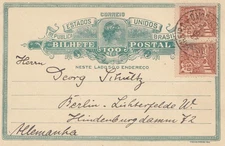 CORREIO
ESTADOS UNIDOS
BRASIL
BILHETE POSTAL
100
NESTE LADO SÓ O ENDEREÇO
Herrn
Georg
Berlin-Lichterfelde W
Hindenburgdamm
Allemanha